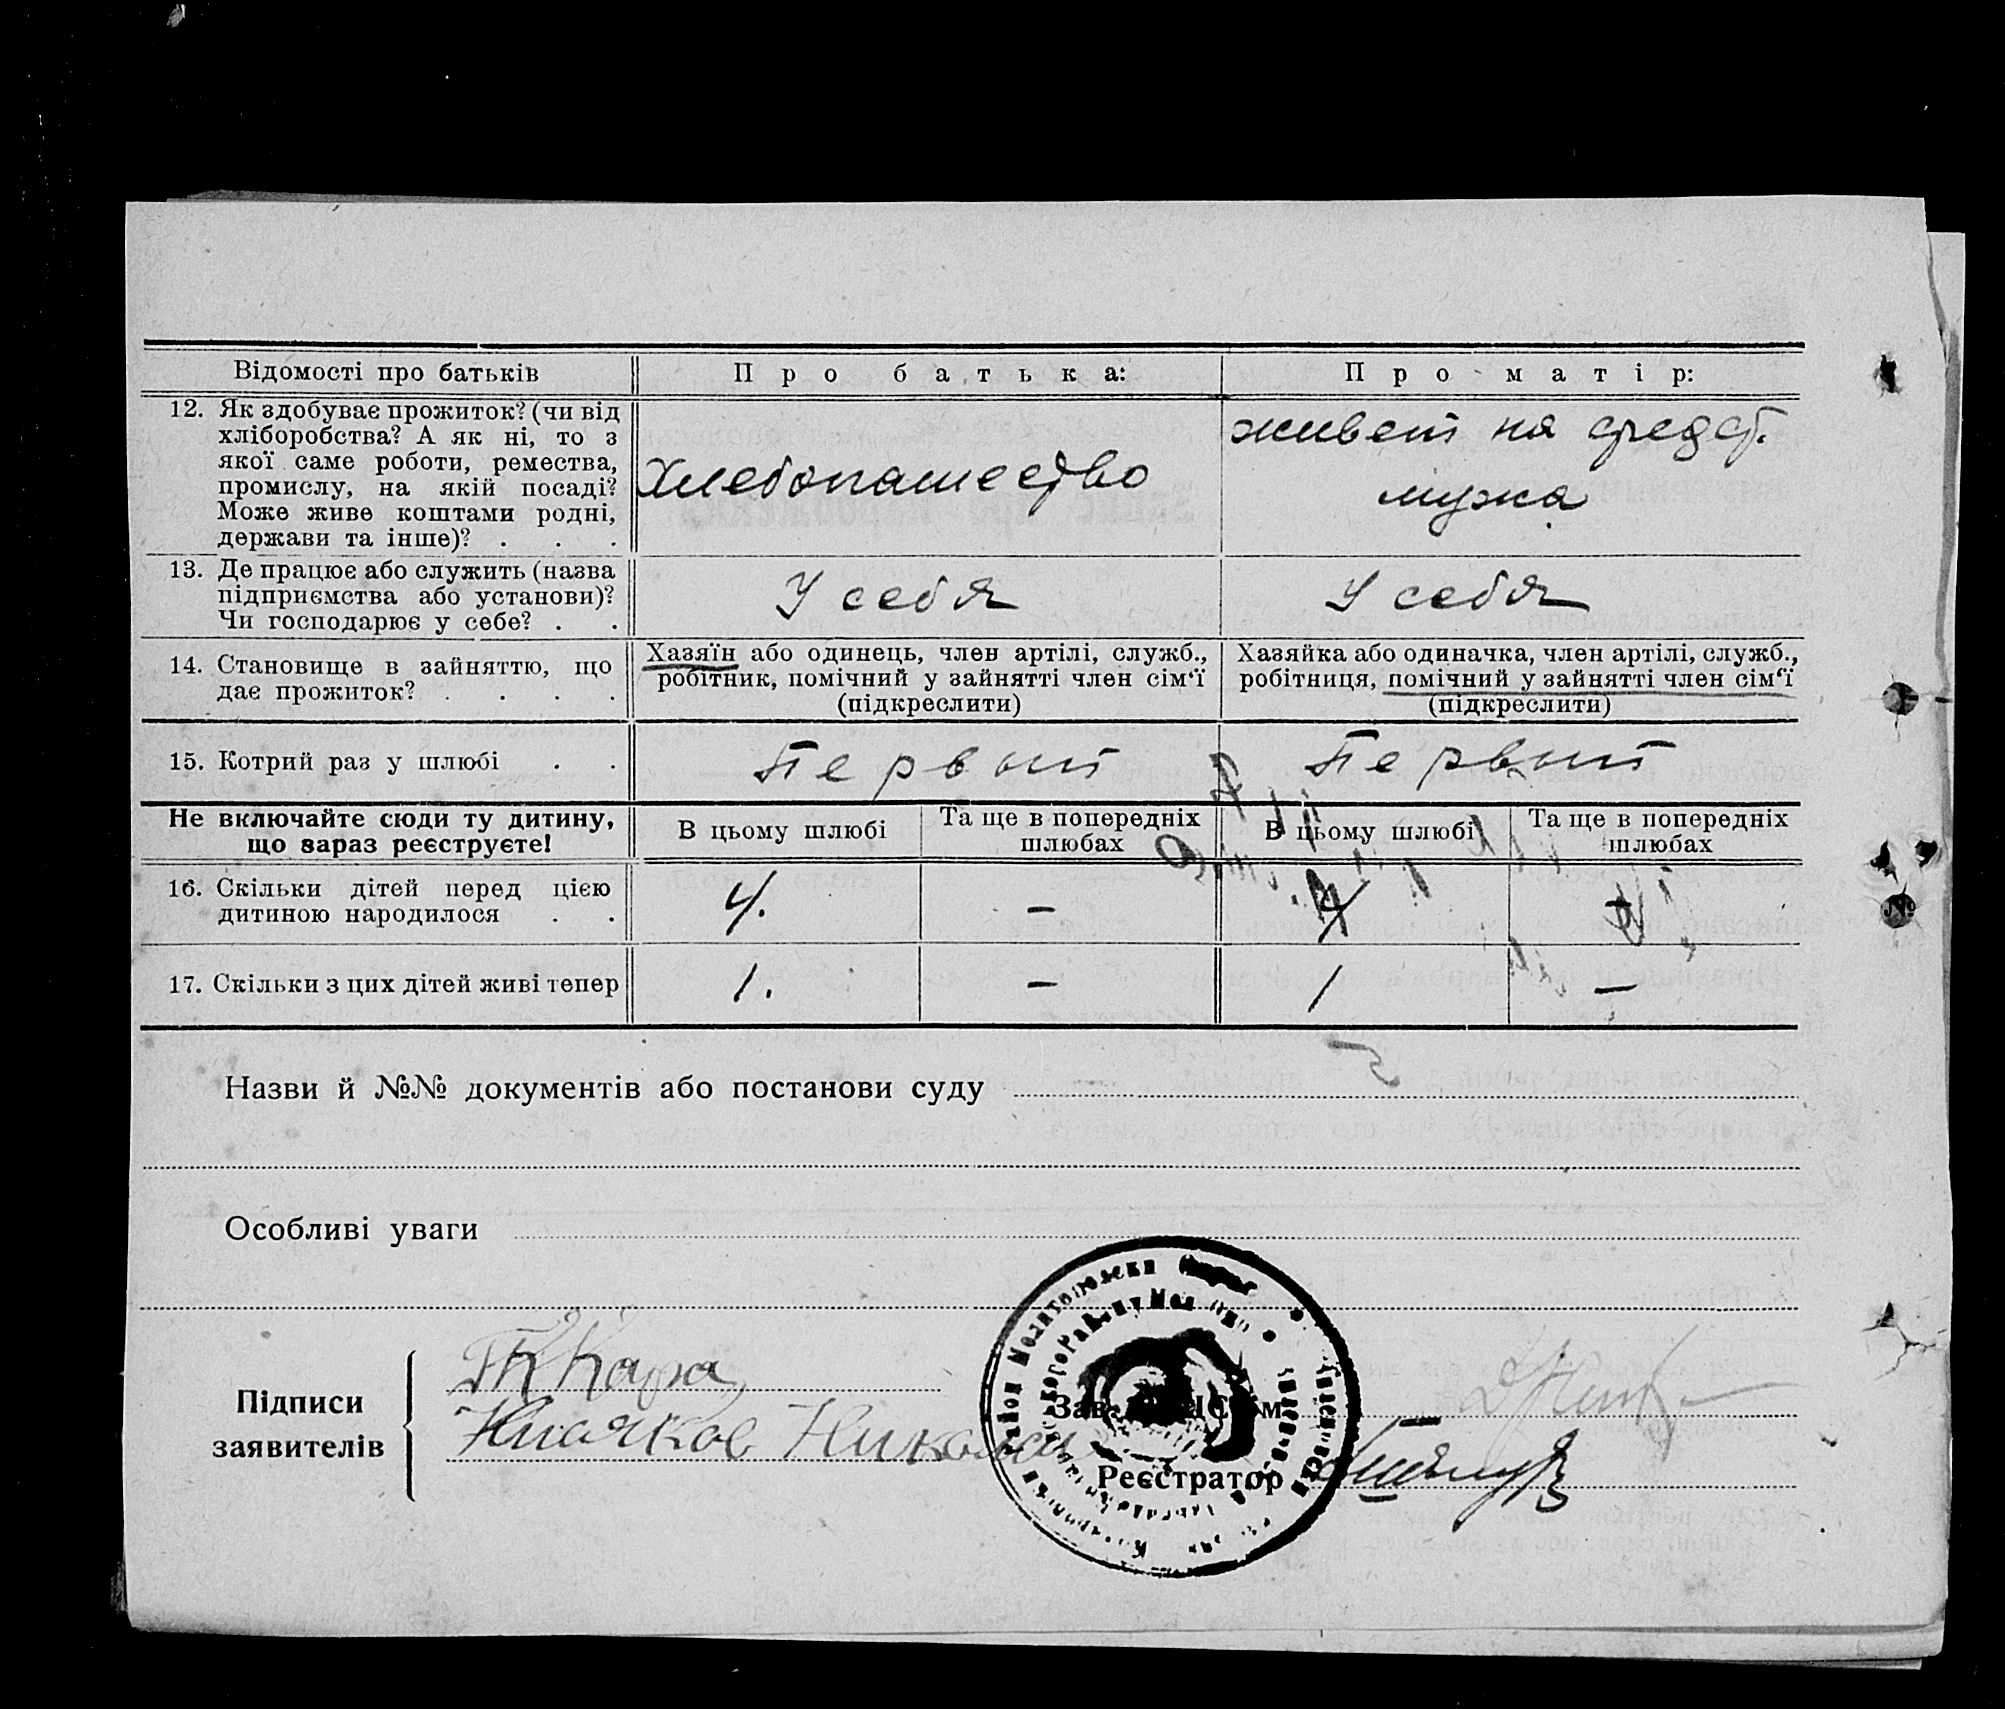 Відомості про батьків
Про батька:
Про матір:
12. Як здобуває прожиток? (чи від
хліборобства? А як ні, то з
якої саме роботи, ремества,
промислу, на якій посаді?
Може живе коштами родні,
держави та інше)? . . .
Хлебопашество
живет на средст.
мужа
13. Де працює або служить (назва
підприємства або установи)?
Чи господарює у себе? . .
У себя
У себя
14. Становище в зайняттю, що
дає прожиток? . . . .
Хазяїн або одинець, член артілі, служб.,
робітник, помічний у зайнятті член сім'ї
(підкреслити)
Хазяйка або одиначка, член артілі, служб.,
робітниця, помічний у зайнятті член сім'ї
(підкреслити)
15. Котрий раз у шлюбі . .
Первый
Первый
Не включайте сюди ту дитину,
що зараз реєструєте!
В цьому шлюбі
Та ще в попередніх
шлюбах
В цьому шлюбі
Та ще в попередніх
шлюбах
16. Скільки дітей перед цією
дитиною народилося . .
4.
–
4
17. Скільки з цих дітей живі тепер
1.
–
1
–
Назви й №№ документів або постанови суду
Особливі уваги
Підписи
заявителів
Кара
Николай
Зав.
Реєстратор